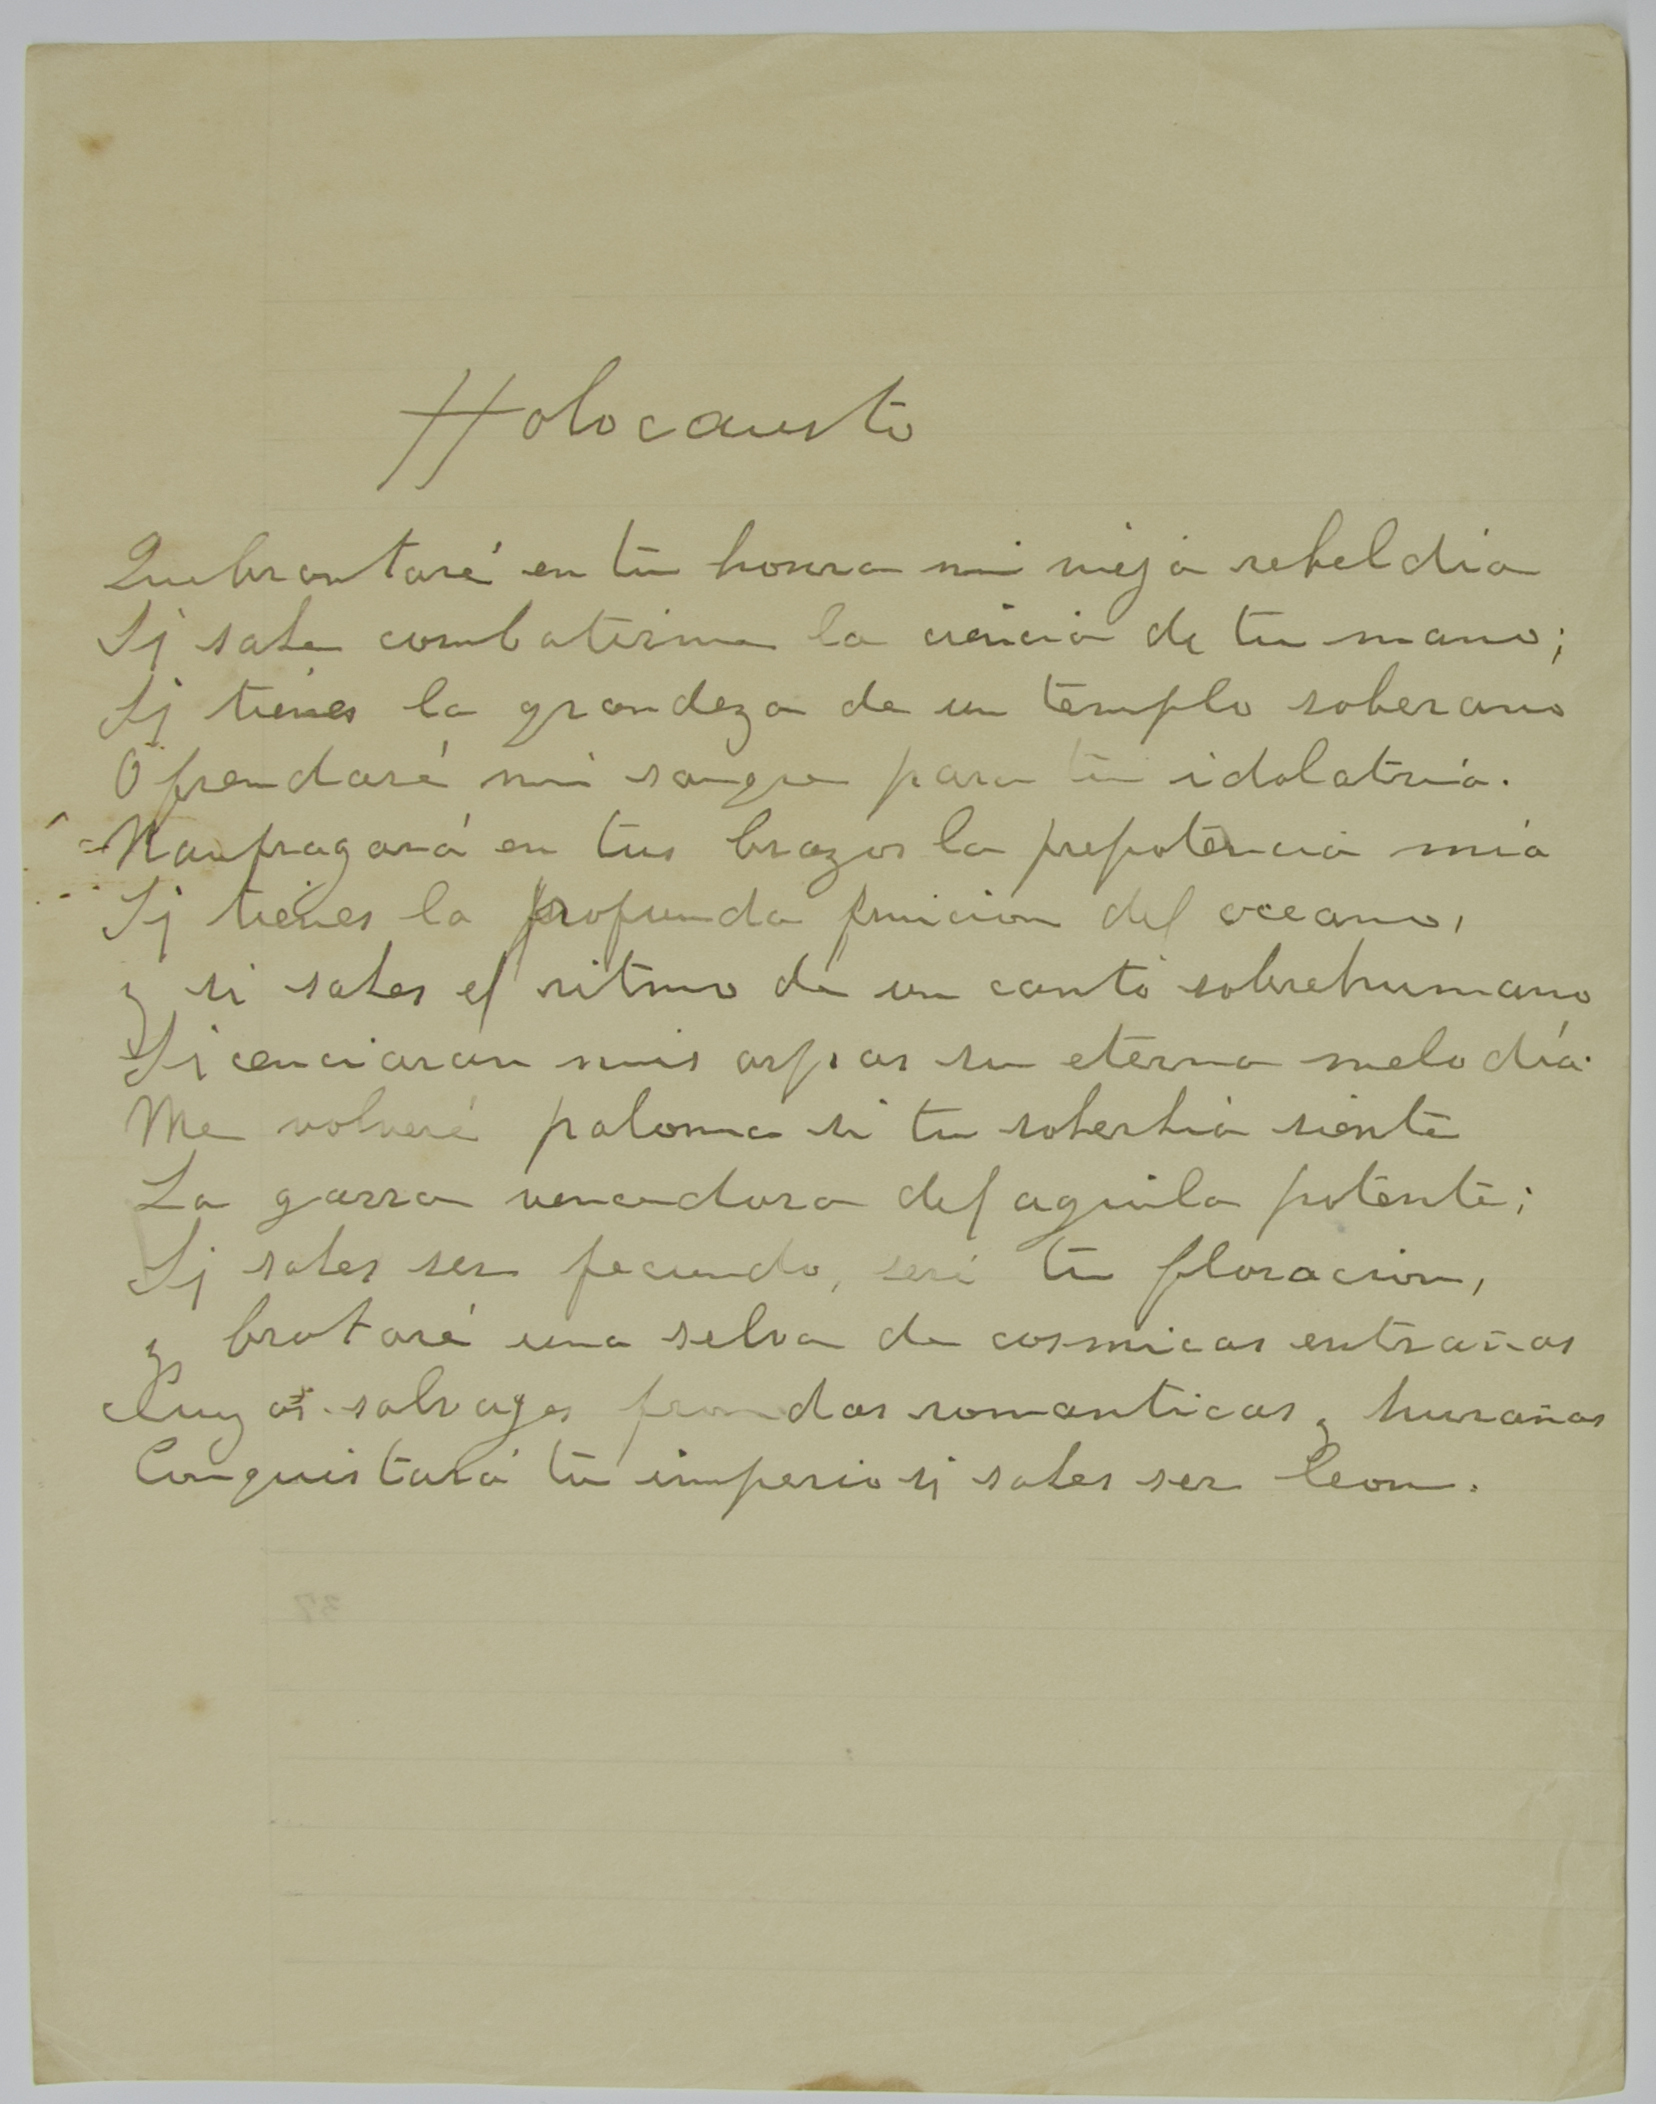 Holocausto
Quebrantaré en tu honra mi vieja rebeldia
Si sabe combatirme la ciencia de tu mano;
Si tienes la grandeza de un templo soberano
Ofrendaré mi sangre para tu idolatria.
Naufragará en tus brazos la prepotencia mia
Si tienes la profunda fruicion del oceano,
y si sabes el ritmo de un canto sobrehumano
Licenciaran mis arpas su eterna melodía.
Me volveré paloma si tu soberbia siente
La garra vencedora del aguila potente;
Si sabes ser fecundo, seré tu floracion,
y brotaré una selva de cosmicas entrañas
Cuyas salvages frondas romanticas y hurañas
Conquistará tu imperio si sabes ser leon.
37